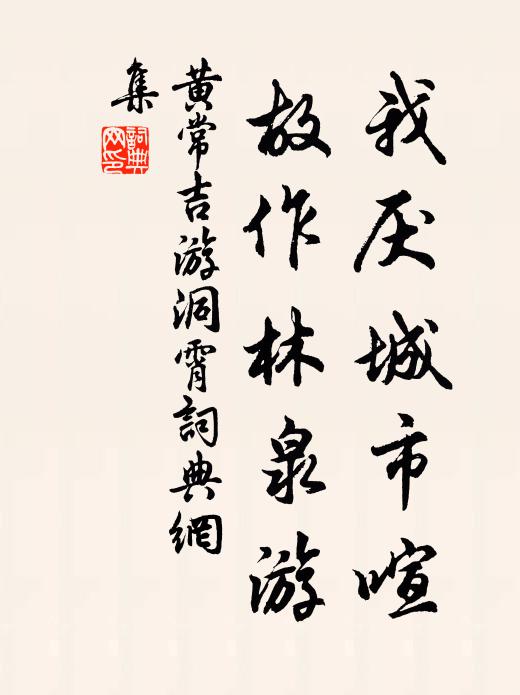 我厌城市喧
故作林泉游
黄常吉游洞霄詞典網
集
詞典網印